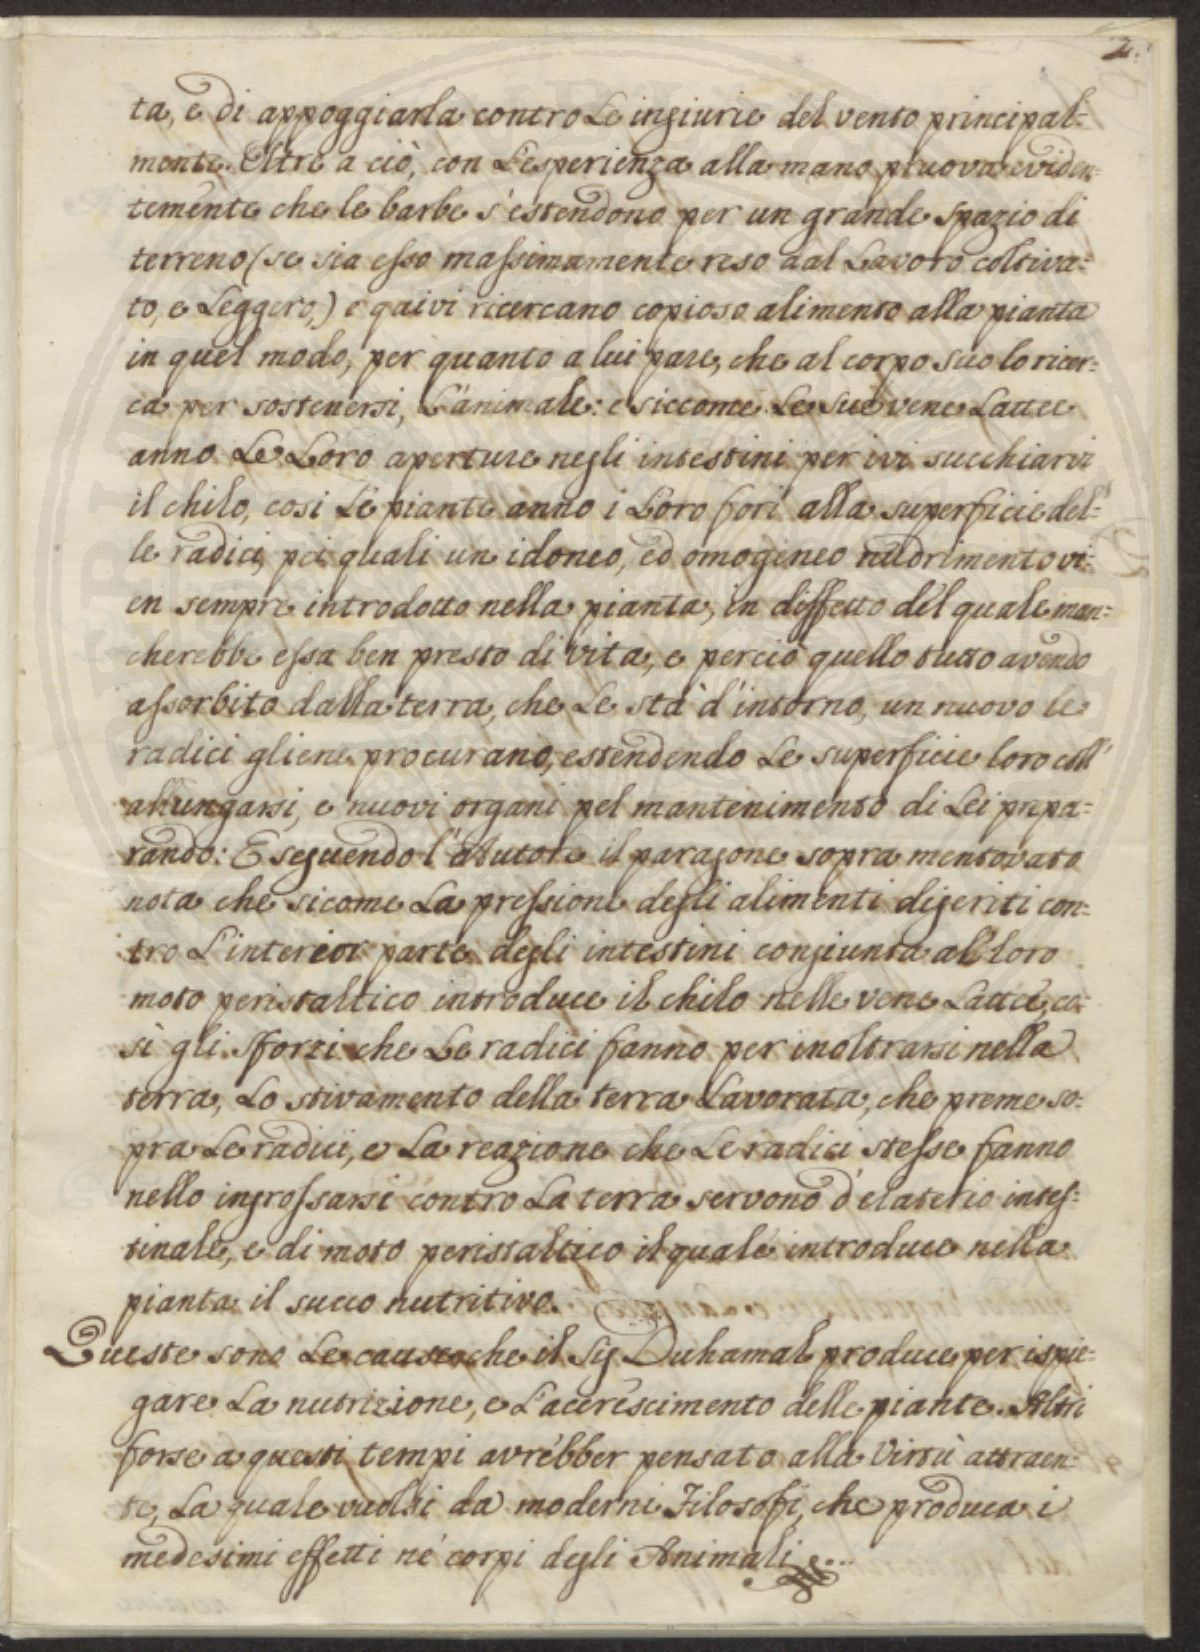 2.
ta, e di appoggiarla contro Le ingiurie del vento principal=
mente. Oltre a ciò, con L'esperienza alla mano pruova eviden=
temente che le barbe s'estendono per un grande spazio di
terreno (se sia esso massimamente reso dal Lavoro coltiva=
to, e Leggero,) e quivi ricercano copioso alimento alla pianta
in quel modo, per quanto a lui pare, che al corpo suo lo ricer=
ca per sostenersi, L'animale: e siccome Le sue vene Lattee
anno Le Loro aperture negli intestini per ivi succhiarvi
il chilo, così Le piante anno i Loro fori alla superficie del=
le radici, pei quali un idoneo, ed omogineo nudrimento vi=
en sempre introdotto nella pianta, in diffetto del quale man=
cherebbe essa ben presto di vita, e perciò quello tutto avendo
assorbito dalla terra, che Le stà d'intorno, un nuovo le
radici gliene procurano, estendendo Le superficie loro coll'
allungarsi, e nuovi organi pel mantenimento di Lei prepa=
rando: E seguendo l'Autore il paragone sopra mentovato
nota che sicome La pressione degli alimenti digeriti con=
tro L'interior parte degli intestini congiunta al loro
moto peristaltico introduce il chilo nelle vene Lattee, co=
sì gli sforzi che Le radici fanno per inoltrarsi nella
terra, Lo stivamento della terra Lavorata, che preme so=
pra Le radici, e La reazione che Le radici stesse fanno
nello ingrossarsi contro La terra servono d'elaterio intes=
tinale, e di moto peristaltico il quale introduce nella
pianta il succo nutritivo.
Queste sono Le cause che il Sig Duhamal produce per ispie=
gare La nutrizione, e L'accrescimento delle piante. Altri
forse a questi tempi avrebber pensato alla Virtù attraen=
te, La quale vuolsi da moderni Filosofi, che produca i
medesimi effetti ne' corpi degli Animali ...